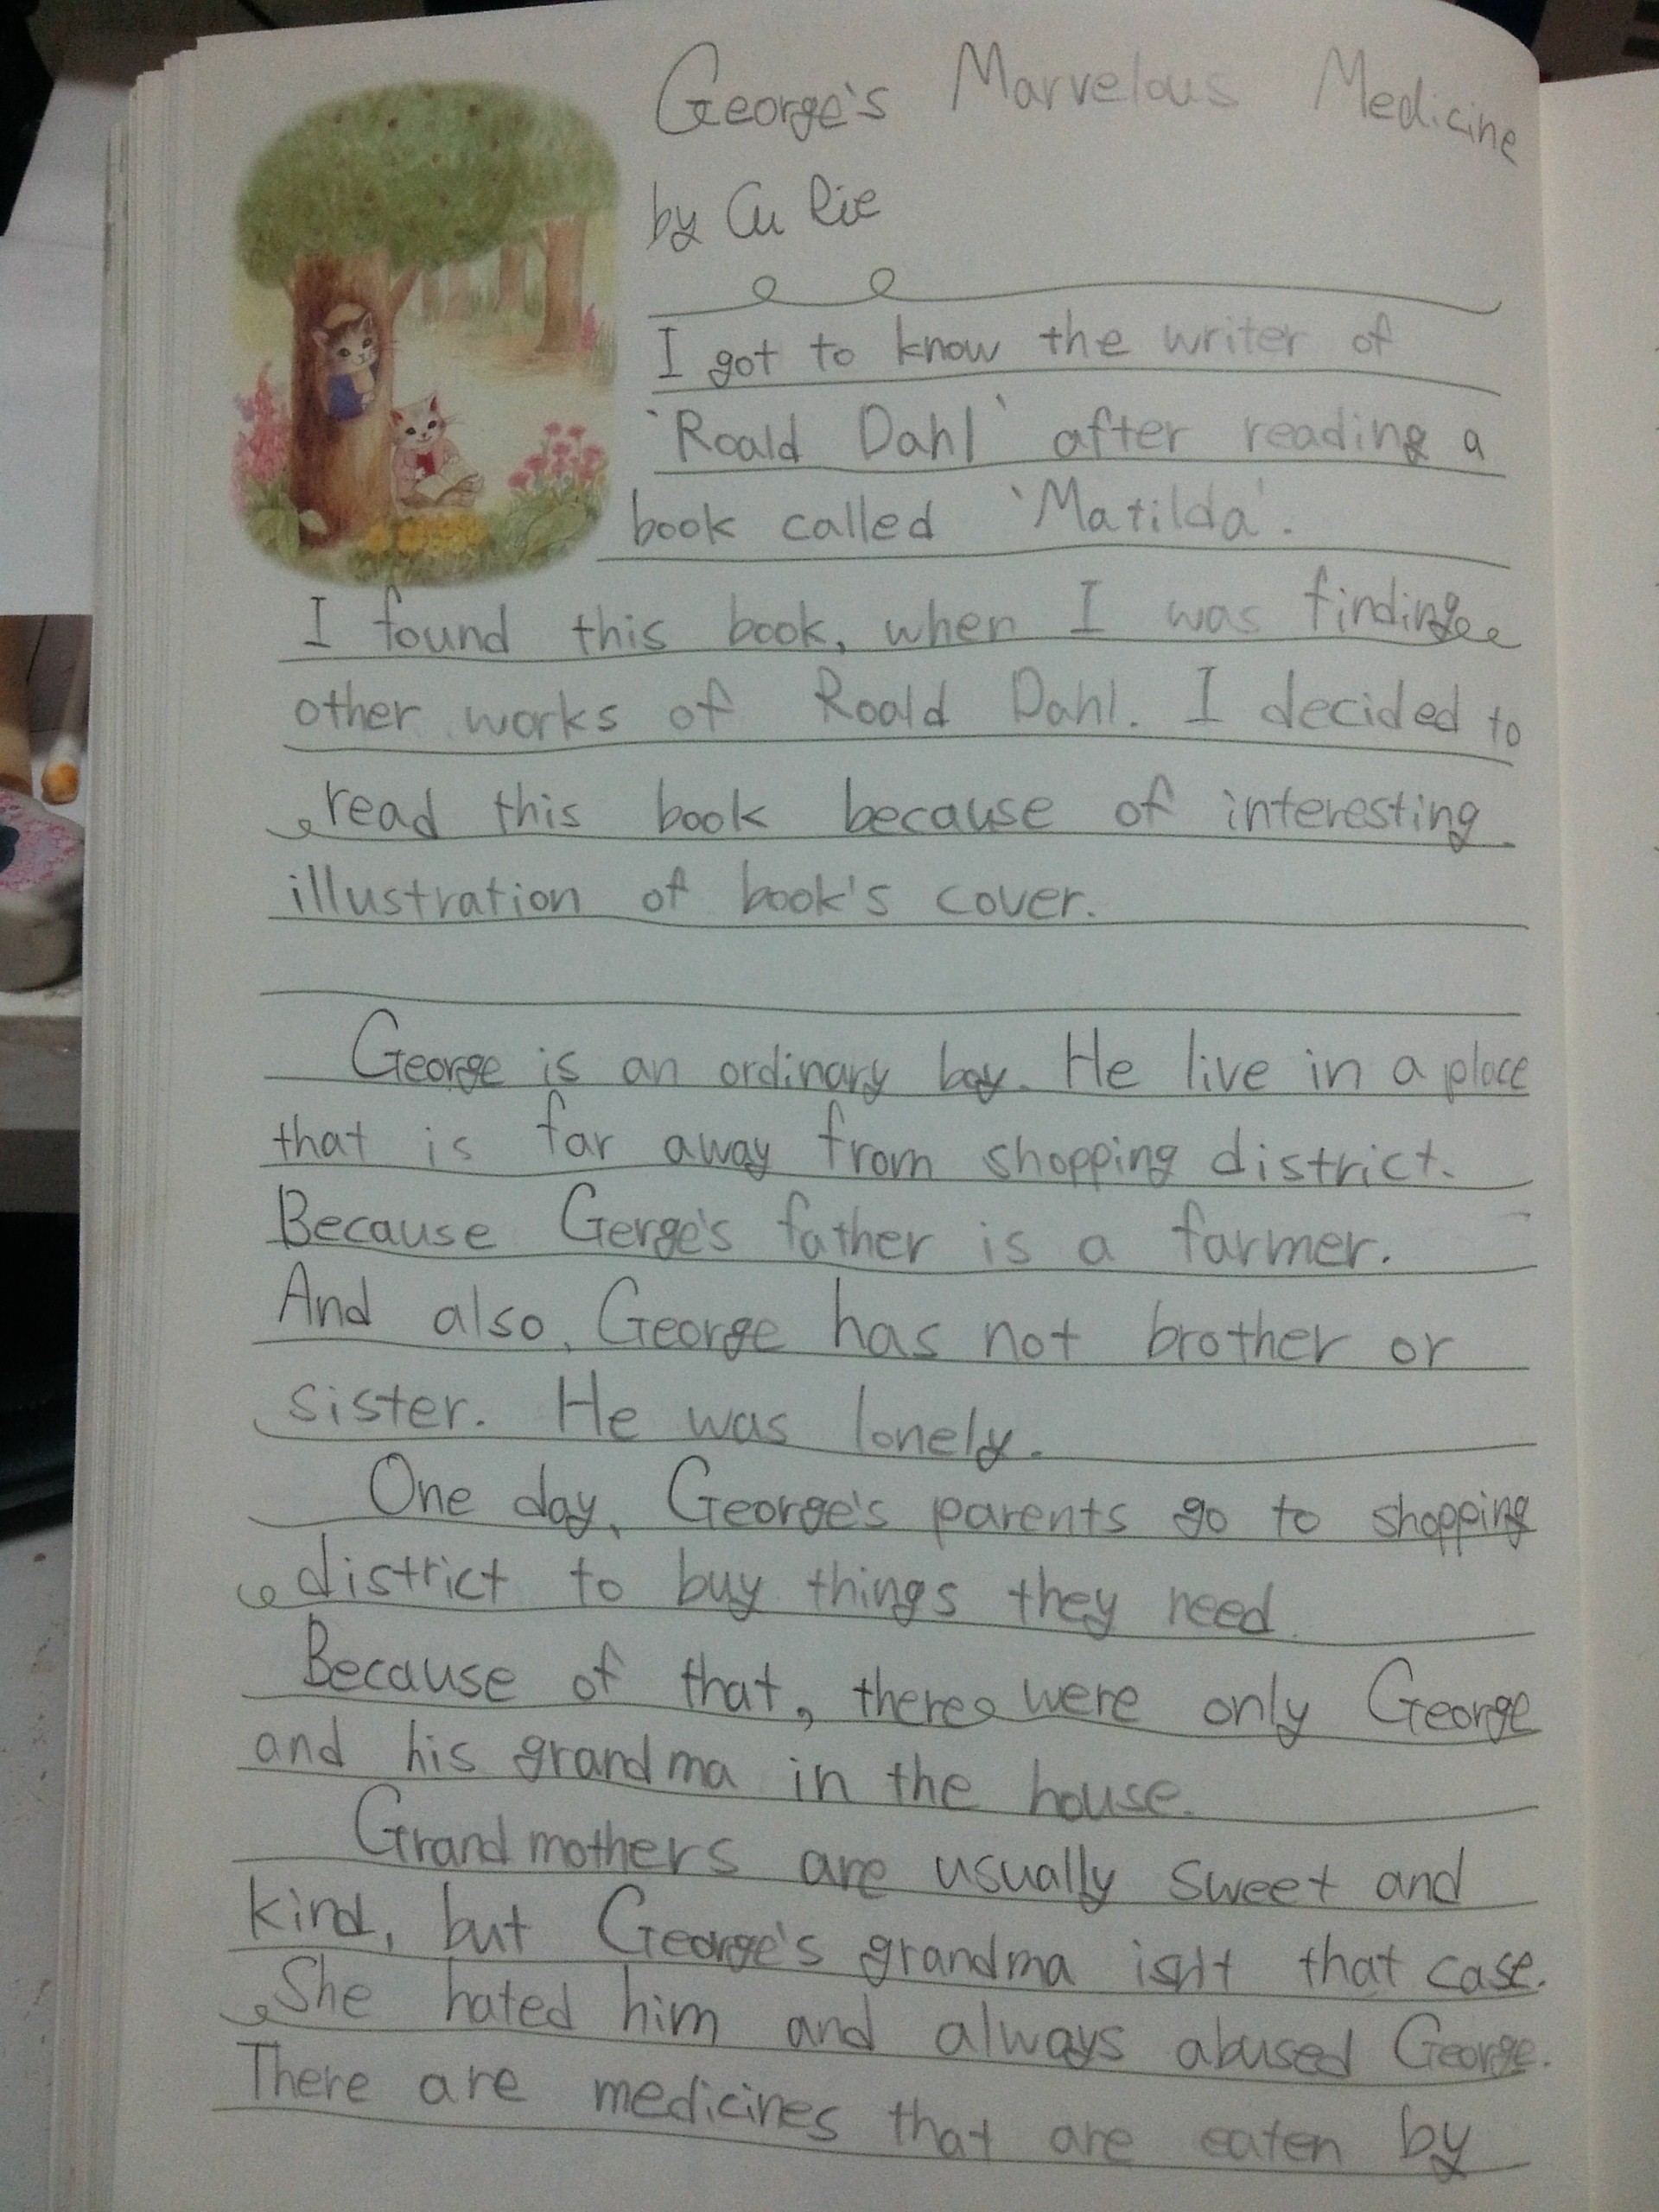 George's Marvelous Medicine
by Cu Rie
I got to know the writer of
`Roald Dahl` after reading a
book called `Matilda'.
I found this book, when I was finding
other works of Roald Dahl. I decided to
read this book because of interesting
illustration of book's cover.
George is an ordinary boy. He live in a place
that is far away from shopping district.
Because Gerge's father is a farmer.
And also, George has not brother or
sister. He was lonely.
One day, George's parents go to shopping
district to buy things they need.
Because of that, there were only George
and his grandma in the house.
Grandmothers are usually sweet and
kind, but George's grandma isn't that case.
She hated him and always abused George.
There are medicines that are eaten by